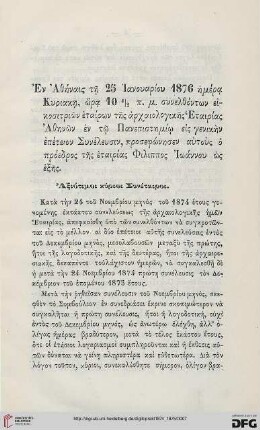 Ἐν Ἀθήναις τῇ 25 Ἰανουαρίου 1876 ἡμέρᾳ
Κυριακῇ, ὥρᾳ 10 π. μ. συνελθόντων εἰ-
κοσιτριῶν ἑταίρων τῆς ἀρχαιολογικῆς Ἑταιρίας
Ἀθηνῶν ἐν τῷ Πανεπιστημίῳ εἰς γενικὴν
ἐπέτειον Συνέλευσιν, προσεφώνησεν αὐτοὺς ὁ
πρόεδρος τῆς ἑταιρίας Φίλιππος Ἰωάννου ὡς
ἑξῆς.
Ἀξιότιμοι κύριοι Συνέταιροι.
Κατὰ τὴν 24 τοῦ Νοεμβρίου μηνὸς τοῦ 1874 ἔτους γε-
νομένης ἐκτάκτου συνελεύσεως τῆς ἀρχαιολογικῆς ἡμῶν
Ἑταιρίας, ἀπεφασίσθη ὑπὸ τῶν συνελθόντων νὰ συγκροτῶν-
ται εἰς τὸ μέλλον αἱ δύο ἐπέτειοι αὐτῆς συνελεύσεις ἐντὸς
τοῦ Δεκεμβρίου μηνός, μεσολαβουσῶν μεταξὺ τῆς πρώτης,
ἤτοι τῆς λογοδοτικῆς, καὶ τῆς δευτέρας, ἤτοι τῆς ἀρχαιρε-
σιακῆς, δεκαπέντε τοὐλάχιστον ἡμερῶν, νὰ συγκροτηθῇ
δὲ ἡ μετὰ τὴν 24 Νοεμβρίου 1874 πρώτη συνέλευσις τὸν Δε-
κέμβριον τοῦ ἑπομένου 1875 ἔτους.
Μετὰ τὴν ῥηθεῖσαν συνέλευσιν τοῦ Νοεμβρίου μηνός, σκεφ-
θὲν τὸ Συμβούλιον ἐν συνεδριάσει ἔκρινε σκοπιμώτερον νὰ
συγκληθῇ ἡ πρώτη συνέλευσις, ἤτοι ἡ λογοδοτική, οὐχὶ
ἐντὸς τοῦ Δεκεμβρίου μηνός, ὡς ἀνωτέρω ἐλέχθη, ἀλλ'
ὀλίγας ἡμέρας βραδύτερον, μετὰ τὸ τέλος τοῦ ἔτους, διότι
οἱ ἐτήσιοι λογαριασμοὶ συμπεραιοῦνται καὶ ἡ ἔκθεσις αὐ-
τῶν δύναται νὰ γείνῃ πληρεστέρα καὶ εὐθετωτέρα. Διὰ τὸν
λόγον τοῦτον, κύριοι, συνεκλήθητε σήμερον, ὀλίγον βρα-
DFG